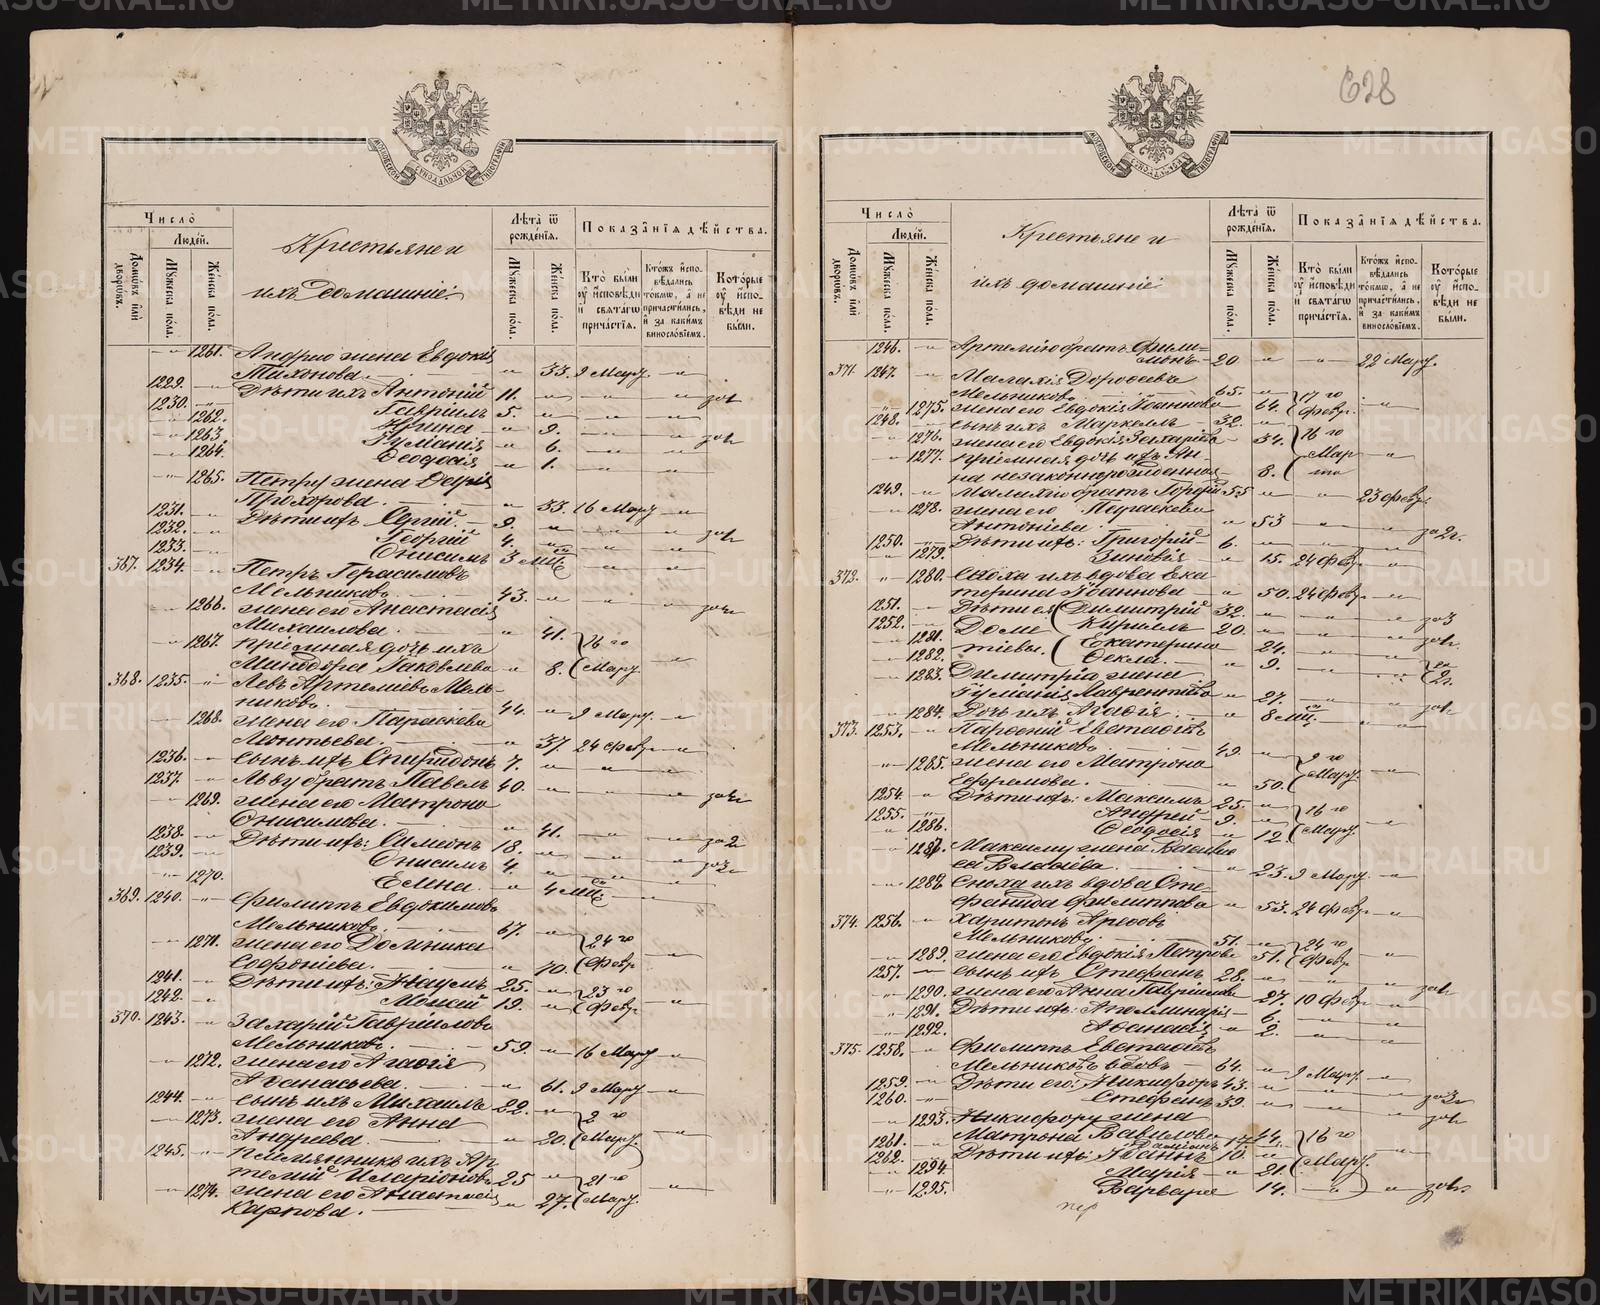 628
Число̀
Людей.
Домѡвъ илѝ дворѡвъ.
Мꙋжеска пола.
Женска пола.
Крестьяне и
ихъ домашніе
Лѣта ѿ рождéнїѧ.
Мꙋжеска пола.
Женска пола.
Показа́нїѧ дѣ́йства.
Кто̀ бы́ли ᲂу҆ и҆сповѣди и҆ свѧтагѡ причастїѧ.
Кто́жъ и҆споведались то́кмѡ, а҆ не причасти́лись, и҆ за каки́мъ винословїемъ.
Кото́рые ᲂу҆ и҆споведи не бы́ли.
1261. Андрею жена Евдокія
Тихонова. 33. 9 Март.
1229. Дѣти ихъ Антоній 11.
1230. Гавріилъ 5.
1262. Ирина 9.
1263. Іуліанія 6.
1264. Ѳеодосія 1.
1265. Петру жена Дарія
Прохорова. 33. 16 Март
1231. Дѣти ихъ Сергій 9.
1232. Георгій 4.
1233. Онисимъ 3 мц
367. 1234. Петръ Герасимовъ
Мельниковъ. 43.
1266. жена его Анастасія
Михаилова. 41.
1267. пріемная дочь ихъ 16 го
Минодора Іаковлева 8. Март.
368. 1235. Левъ Артеміевъ Мель-
никовъ. 44. 9 Март.
1268. жена его Параскева
Леонтьева. 37. 24 Февр
1236. сынъ ихъ Спиридонъ 7.
1237. Льву братъ Павелъ 40.
1269. жена его Матрона
Онисимова. 41.
1238. Дѣти ихъ: Симеонъ 18.
1239. Онисимъ 4.
1270. Елена. 4 мц
369. 1240. Филиппъ Евдокимовъ
Мельниковъ. 67.
1271. жена его Домника 24 го
Софоніева. 70. Февр
1241. Дѣти ихъ: Наумъ 25. 23 го
1242. Моисей 19. Февр
370. 1243. Захарій Гавріиловъ
Мельниковъ. 59. 16 Март
1272. жена его Агаѳія
Аѳанасьева. 61. 9 Март
1244. сынъ ихъ Михаилъ 22.
1273. жена его Анна 9 го
Андреева. 20. Март.
1245. племянникъ ихъ Ар-
темій Иларіоновъ 25 21 го
1274. жена его Анастасія 27. Март.
Карпова.
Число̀
Людей.
Домѡвъ илѝ дворѡвъ.
Мꙋжеска пола.
Женска пола.
Крестьяне и
ихъ домашніе
Лѣта ѿ рождéнїѧ.
Мꙋжеска пола.
Женска пола.
Показа́нїѧ дѣ́йства.
Кто̀ бы́ли ᲂу҆ и҆сповѣди и҆ свѧтагѡ причастїѧ.
Кто́жъ и҆споведались то́кмѡ, а҆ не причасти́лись, и҆ за каки́мъ винословїемъ.
Кото́рые ᲂу҆ и҆споведи не бы́ли.
1246. Артемію братъ Фили-
монъ 20 22 Март.
371. 1247. Малахія Дороѳеевъ
Мельниковъ. 65. 17 го
1275. жена его Евдокія Іоаннова 64. Февр.
1248. сынъ ихъ Маркеллъ 32.
1276. жена его Евдокія Захаріева 34. 16 го
1277. пріемная дочь ихъ Ан- Мар
на незаконнорожденная 8. та
1249. Малахію братъ Гордій 55 23 Февр.
1278. жена его Параскева
Антоніева. 53
1250. Дѣти ихъ: Григорій 6. за 2 г.
1279. Зиновія 15. 24 Февр.
372. 1280. Сноха ихъ вдова Ека-
терина Іоаннова 50. 24 Февр.
1251. Дѣти ея Димитрій 32.
1252. Доме- Кириллъ 20.
1281. тіевы. Екатерина 24.
1282. Ѳекла. 9.
1283. Димитрія жена
Іуліанія Лаврентіева 27.
1284. Дочь ихъ Агаѳія. 8 мц.
373. 1253. Парѳеній Евстаѳіевъ
Мельниковъ. 49.
1285. жена его Матрона 9 го
Ефремова. 50. Март.
1254. Дѣти ихъ: Максимъ 25. 16 го
1255. Андрей 9.
1286. Ѳеодосія 12. Март.
1287. Максиму жена Васили-
са Власіева. 23. 9 Март.
1288 Сноха ихъ вдова Сте-
фанида Филиппова 53. 24 Февр
374. 1256. Харитонъ Ареѳовъ
Мельниковъ. 51. 24 го
1289. жена его Евдокія Петрова 51. Февр
1257. сынъ ихъ Стефанъ 28.
1290. жена его Анна Гавріилова 27. 10 Февр
1291. Дѣти ихъ: Аполлинарія 6.
1292. Аѳанасія 2.
375. 1258. Филиппъ Евстаѳіевъ
Мельниковъ вдовъ 64. 9 Март.
1259. Дѣти его: Никифоръ 43.
1260. Стефанъ 39.
1293. Никифору жена
Матрона Вавилова 44. 16 го
1261.
1262. Дѣти ихъ Іоаннъ 10. Март.
1294. Марія 21.
1295. Варвара 14.